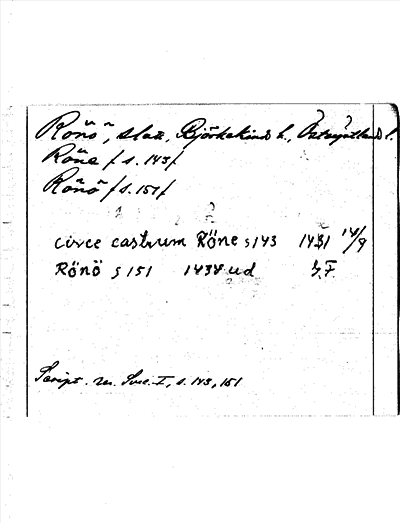 Rönö, slott, Björkekinds h., Östergötlands l.
Röne /s. 143/
Rönö /s. 151/
circe castrum Röne s 143 1431 14/9
Rönö s 151 1434 ud
Script. rer. Svec. I, s. 143, 151